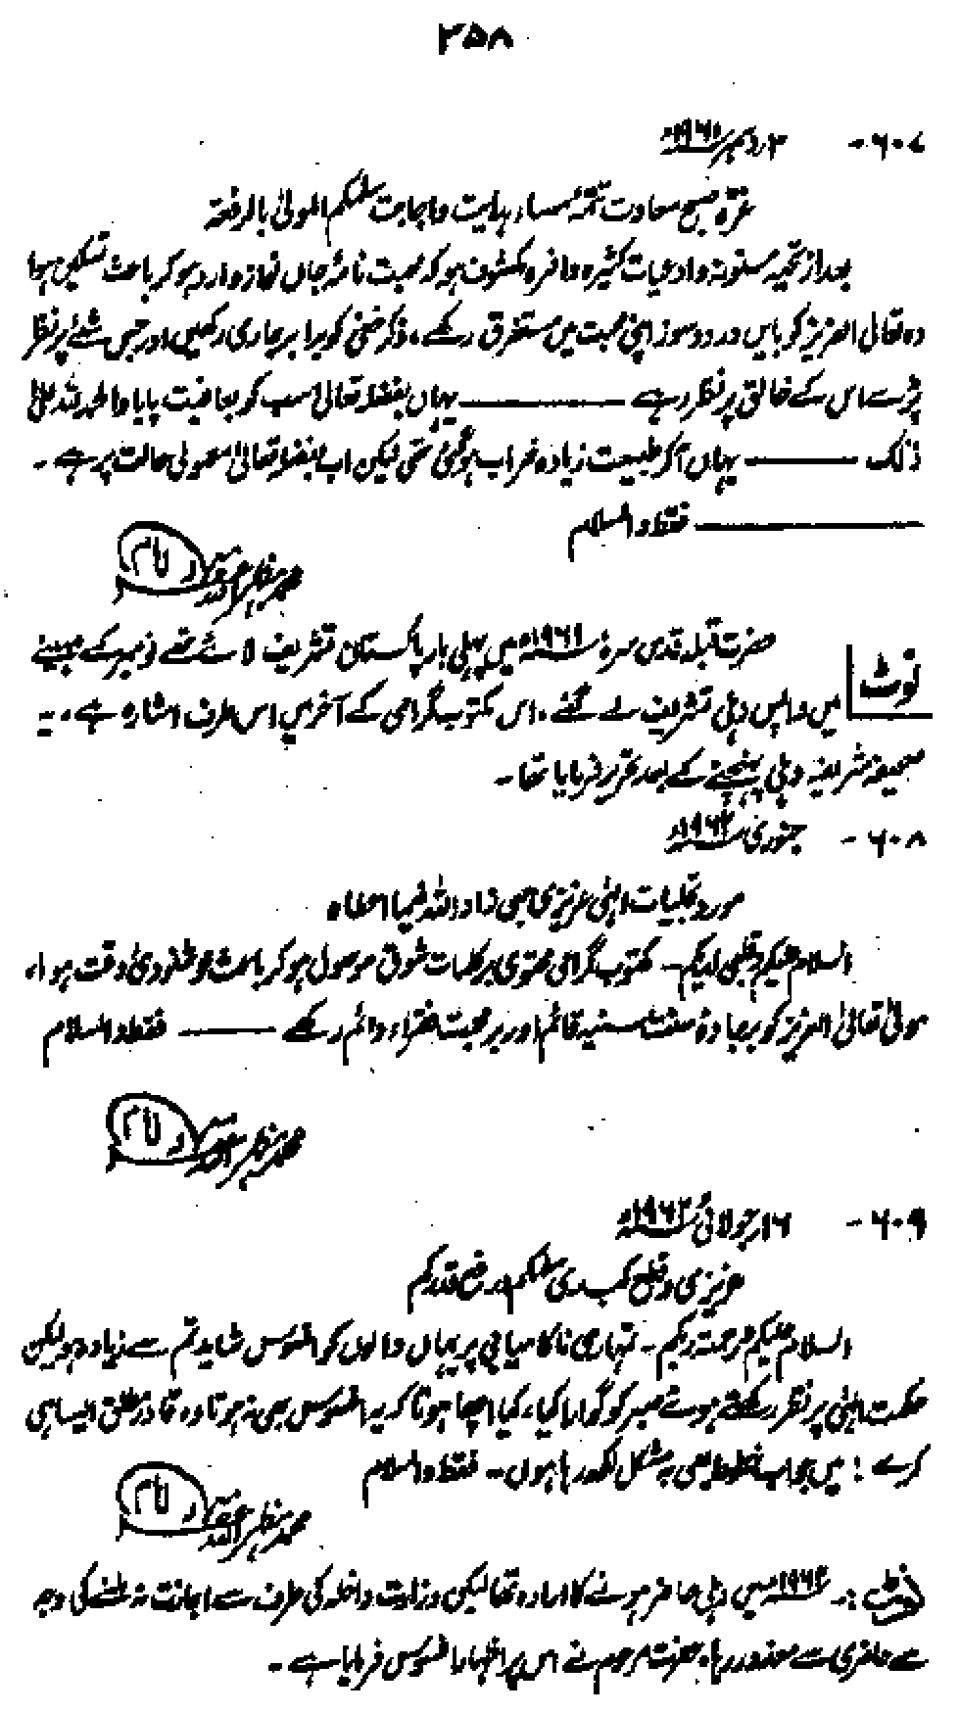 ۲۵۸
۶۰۷ - ۲ر دسمبر ۱۹۶۱ء
غرۂ صبح سعادت تتمۂ مساء ہدایت و اجابت سلمکم المولیٰ بالرفعۃ
بعد از تحیہ مسنونہ و ادعیات کثیرہ وافرہ مکشوف ہو کہ محبت نامۂ جاں نواز وارد ہو کر باعث تسکین ہوا
وہ تعالیٰ العزیز کو بایں درد و سوز اپنی محبت میں مستغرق رکھے، ذکر خفی کو برابر جاری رکھیں اور جس شئے پر نظر
پڑے اس کے خالق پر نظر رہے ——— یہاں بفضلہ تعالیٰ سب کو بعافیت پایا والحمد للہ علیٰ
ذٰلک ——— یہاں آکر طبیعت زیادہ خراب ہوگئی تھی لیکن اب بفضلہ تعالیٰ معمولی حالت پر ہے -
——— فقط والسلام
محمد مظہر اللہ غفرلہ
نوٹ حضرت قبلہ قدس سرہٗ ۱۹۶۱ء میں پہلی بار پاکستان تشریف لائے تھے نومبر کے مہینے
میں واپس دہلی تشریف لے گئے، اس مکتوب گرامی کے آخر میں اس طرف اشارہ ہے، یہ
صحیفہ شریفہ دہلی پہنچنے کے بعد تحریر فرمایا تھا -
۶۰۸ - جنوری ۱۹۶۲ء
مورد تجلیات الٰہی عزیزی محبی زاد اللہ فیما اعطاہ
السلام علیکم وقلبی لدیکم - مکتوب گرامی محتوی بر کلمات شوق موصول ہو کر باعث خوشنودیٔ وقت ہوا،
مولیٰ تعالیٰ العزیز کو بر جادۂ سنت سنیہ قائم اور بر محبت فقراء دائم رکھے ——— فقط والسلام
محمد مظہر اللہ
۶۰۹ - ۱۶ر جولائی ۱۹۶۲ء
عزیزی و قطع کبدی سلمکم و رفع قدرکم
السلام علیکم ورحمۃ ربکم - تمہاری ناکامیابی پر یہاں والوں کو افسوس شاید تم سے زیادہ ہو لیکن
حکمت الٰہی پر نظر رکھتے ہوئے صبر کو گوارا کیا، کیا اچھا ہوتا کہ یہ افسوس بھی نہ ہوتا وہ قادر مطلق ایسا ہی
کرے! میں جواب خطوط بھی بہ مشکل لکھ رہا ہوں - فقط والسلام
محمد مظہر اللہ غفرلہ
نوٹ :- ۱۹۶۲ء میں دہلی حاضر ہونے کا ارادہ تھا لیکن وزارت داخلہ کی طرف سے اجازت نہ ملنے کی وجہ
سے حاضری سے معذور رہا، حضرت مرحوم نے اس پر اظہار افسوس فرمایا ہے -